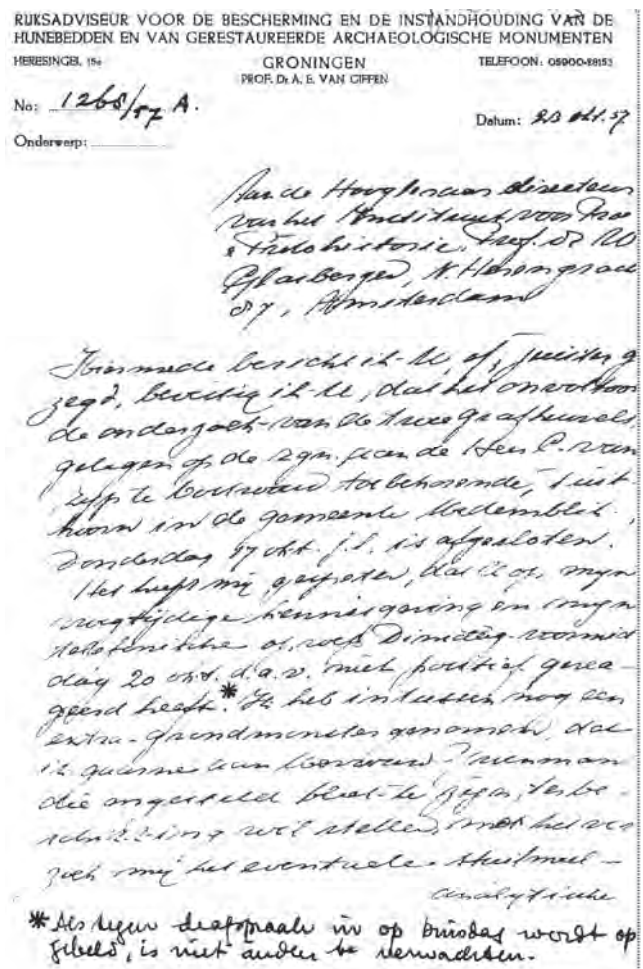 RIJKSADVISEUR VOOR DE BESCHERMING EN DE INSTANDHOUDING VAN DE
HUNEBEDDEN EN VAN GERESTAUREERDE ARCHAEOLOGISCHE MONUMENTEN
HERESINGEL 15a GRONINGEN TELEFOON: 05900-28153
PROF. Dr. A. E. VAN GIFFEN
No: 1265/57 A.
Datum: 23 okt. 57
Onderwerp:
Aan de Hoogleraar directeur
van het Instituut voor Prae
& Protohistorie, Prof. Dr W
Glasbergen, N. Herengracht
87, Amsterdam
Hiermede bericht ik U, of, juister ge
zegd, bevestig ik U, dat het
de onderzoek van de twee grafheuvels,
gelegen op de zgn. aan de Heer C. van
te toebehorende,
in de gemeente Medemblik,
Donderdag 17 okt. j.l. is afgesloten.
Het heeft mij gespeten, dat U op mijn
kennisgeving en mijn
telefonische Dinsdag-voormid
dag 20 okt. d.a.v. niet positief gerea-
geerd heeft.* Ik heb intussen nog een
extra-grondmonster genomen, dat
ik gaarne aan
die te zijn, ter be-
schikking wil stellen, met het ver
zoek mij het eventuele stuifmeel-
analytische
*Als tegen de afspraak in op dinsdag wordt op
gebeld, is niet anders te verwachten.